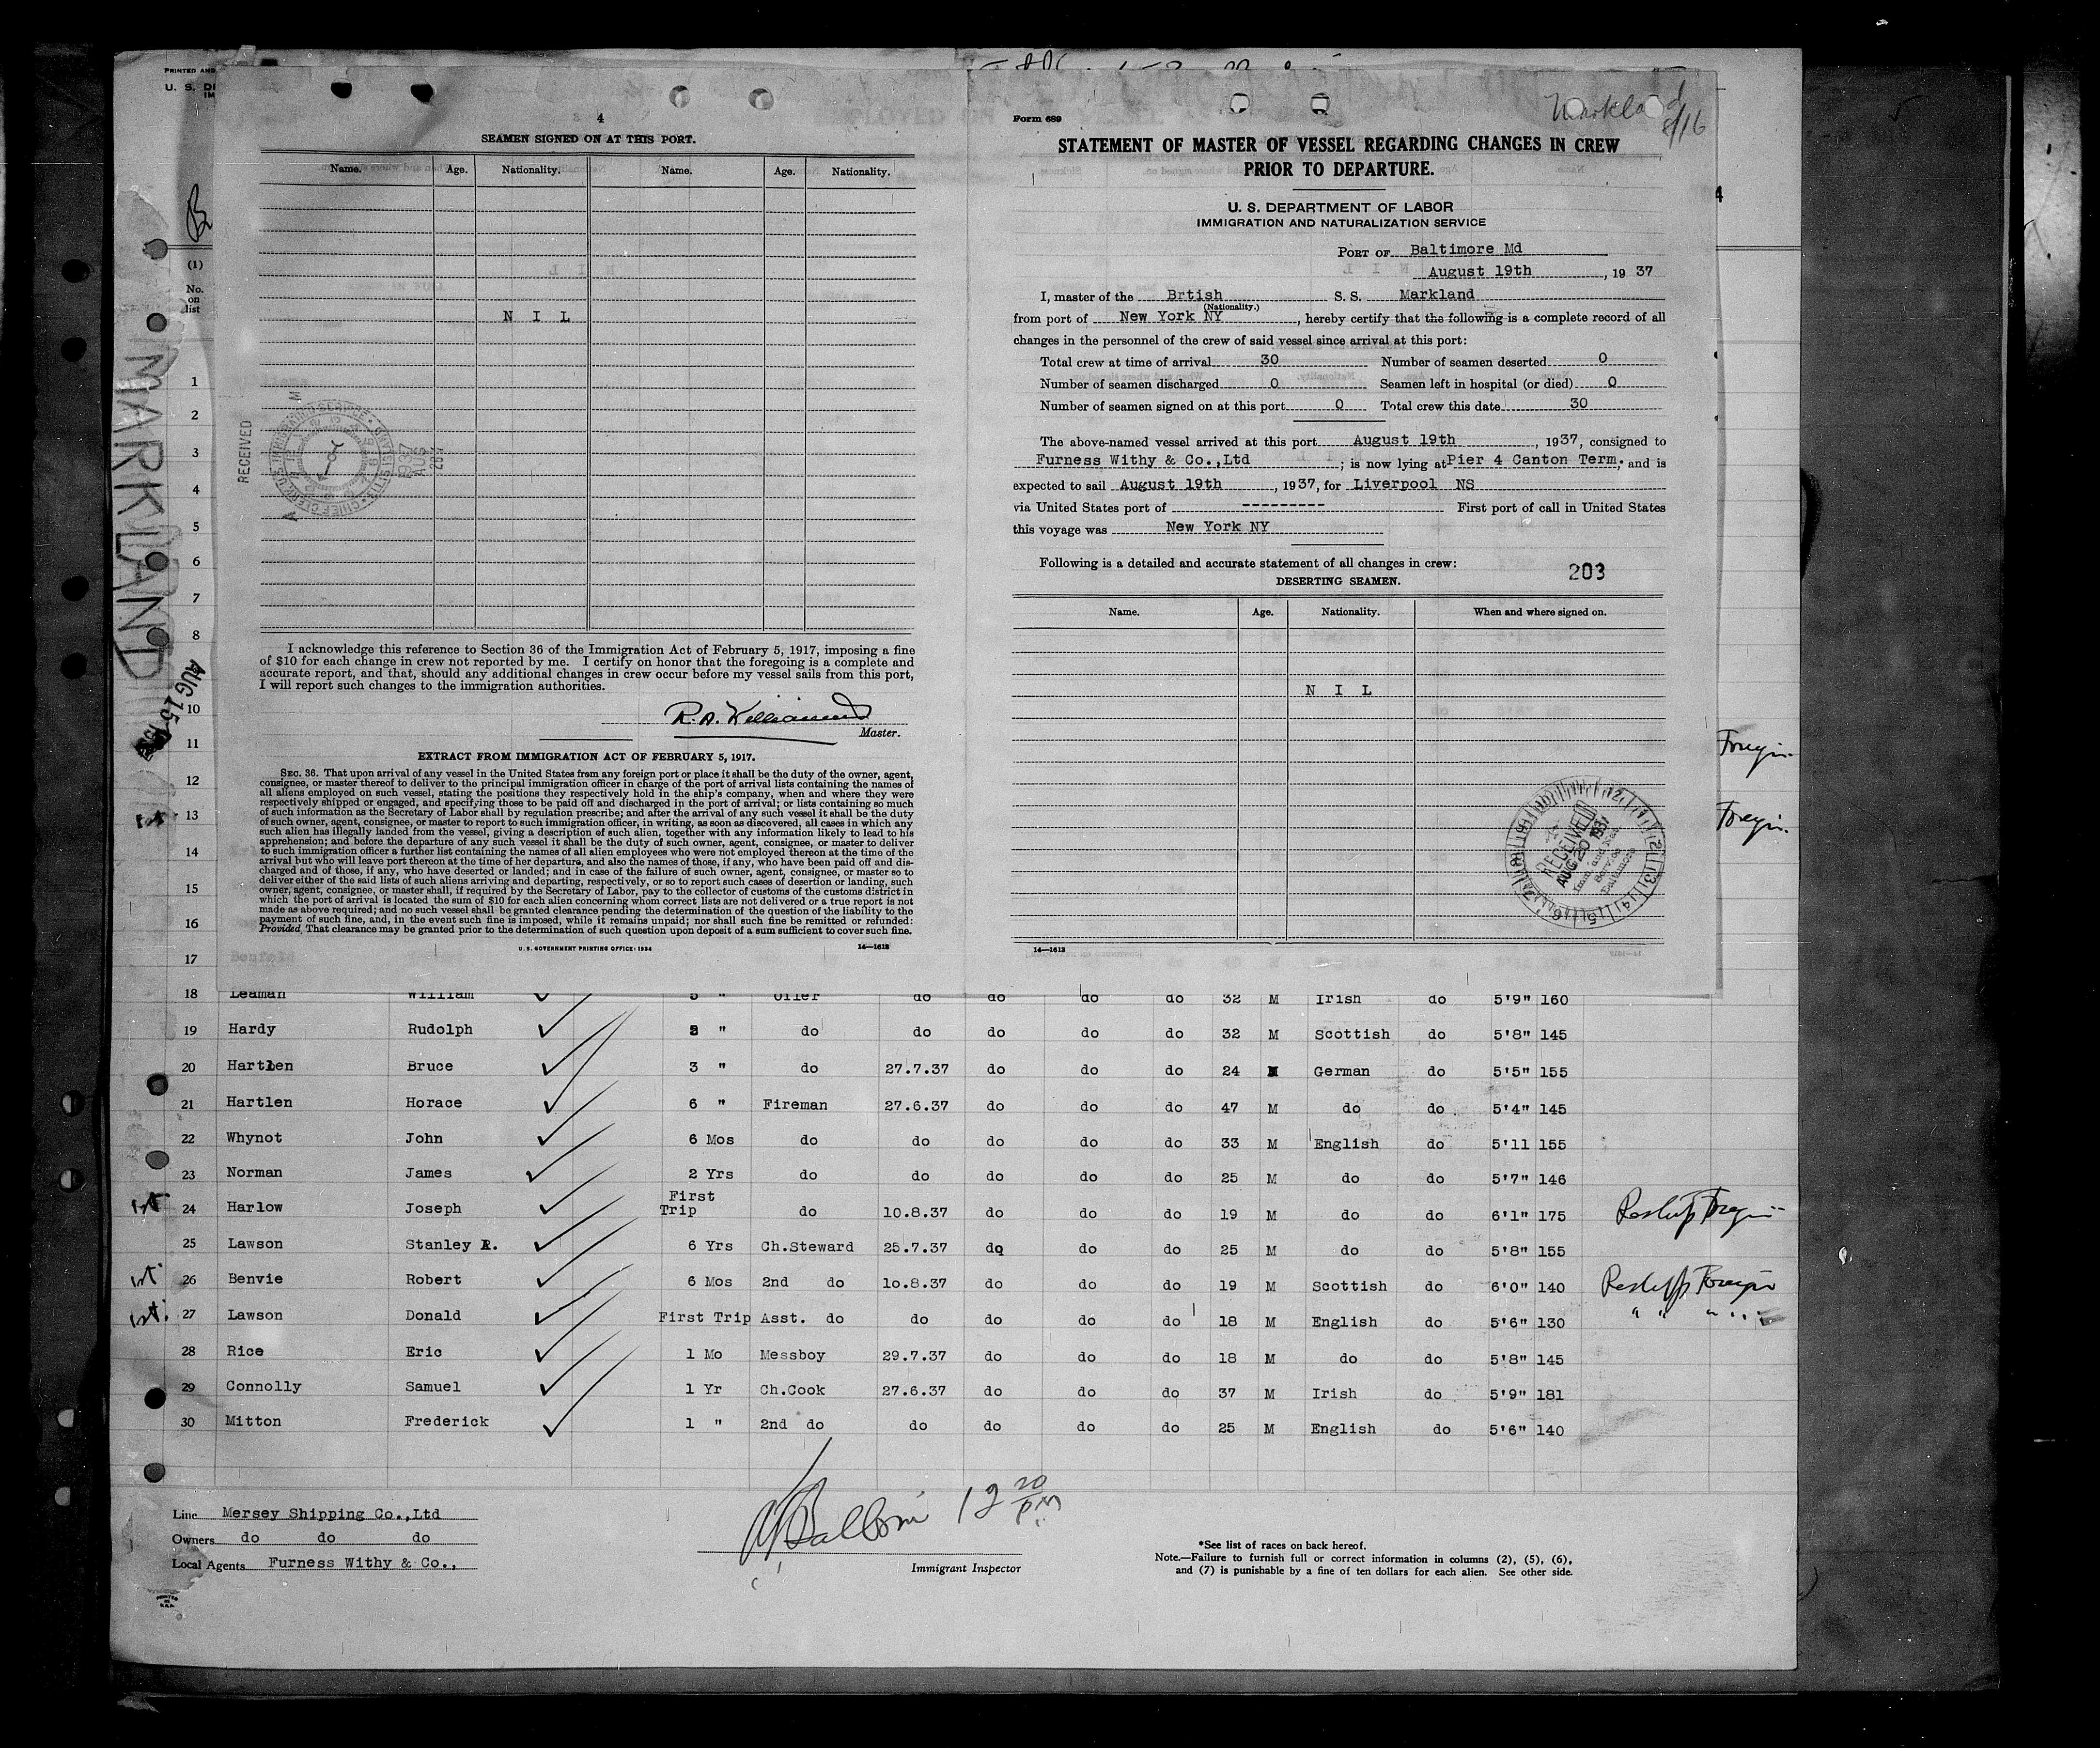 PRINTED AND
U. S. D
IM
(1)
No.
on
list
MARKLAND
AUG 15
4
SEAMEN SIGNED ON AT THIS PORT.
Name. Age. Nationality. Name. Age. Nationality.
N I L
RECEIVED
1937
AUG
I acknowledge this reference to Section 36 of the Immigration Act of February 5, 1917, imposing a fine
of $10 for each change in crew not reported by me. I certify on honor that the foregoing is a complete and
accurate report, and that, should any additional changes in crew occur before my vessel sails from this port,
I will report such changes to the immigration authorities.
Master.
EXTRACT FROM IMMIGRATION ACT OF FEBRUARY 5, 1917.
SEC. 36. That upon arrival of any vessel in the United States from any foreign port or place it shall be the duty of the owner, agent,
consignee, or master thereof to deliver to the principal immigration officer in charge of the port of arrival lists containing the names of
all aliens employed on such vessel, stating the positions they respectively hold in the ship's company, when and where they were
respectively shipped or engaged, and specifying those to be paid off and discharged in the port of arrival; or lists containing so much
of such information as the Secretary of Labor shall by regulation prescribe; and after the arrival of any such vessel it shall be the duty
of such owner, agent, consignee, or master to report to such immigration officer, in writing, as soon as discovered, all cases in which any
such alien has illegally landed from the vessel, giving a description of such alien, together with any information likely to lead to his
apprehension; and before the departure of any such vessel it shall be the duty of such owner, agent, consignee, or master to deliver
to such immigration officer a further list containing the names of all alien employees who were not employed thereon at the time of the
arrival but who will leave port thereon at the time of her departure, and also the names of those, if any, who have been paid off and dis-
charged and of those, if any, who have deserted or landed; and in case of the failure of such owner, agent, consignee, or master so to
deliver either of the said lists of such aliens arriving and departing, respectively, or so to report such cases of desertion or landing, such
owner, agent, consignee, or master shall, if required by the Secretary of Labor, pay to the collector of customs of the customs district in
which the port of arrival is located the sum of $10 for each alien concerning whom correct lists are not delivered or a true report is not
made as above required; and no such vessel shall be granted clearance pending the determination of the question of the liability to the
payment of such fine, and, in the event such fine is imposed, while it remains unpaid; nor shall such fine be remitted or refunded:
Provided, That clearance may be granted prior to the determination of such question upon deposit of a sum sufficient to cover such fine.
U. S. GOVERNMENT PRINTING OFFICE: 1934 14—1613
Markland
8/16
Form 689
STATEMENT OF MASTER OF VESSEL REGARDING CHANGES IN CREW
PRIOR TO DEPARTURE.
U. S. DEPARTMENT OF LABOR
IMMIGRATION AND NATURALIZATION SERVICE
PORT OF Baltimore Md
August 19th, 19 37
I, master of the Brtish S. S. Markland
(Nationality.)
from port of New York NY, hereby certify that the following is a complete record of all
changes in the personnel of the crew of said vessel since arrival at this port:
Total crew at time of arrival 30 Number of seamen deserted 0
Number of seamen discharged 0 Seamen left in hospital (or died) 0
Number of seamen signed on at this port 0 Total crew this date 30
The above-named vessel arrived at this port August 19th, 1937, consigned to
Furness Withy & Co.,Ltd; is now lying at Pier 4 Canton Term. and is
expected to sail August 19th, 1937, for Liverpool NS
via United States port of --------- First port of call in United States
this voyage was New York NY
Following is a detailed and accurate statement of all changes in crew:
203
DESERTING SEAMEN.
Name. Age. Nationality. When and where signed on.
N I L
RECEIVED
AUG 20 1937
Imm. and Nat.
Service
Baltimore
14—1613
1
2
3
4
5
6
7
8
10
11
12
1st 13
14
15
16
17
18 Leaman William 5 " Oiler do do do do 32 M Irish do 5'9" 160
19 Hardy Rudolph " do do do do do 32 M Scottish do 5'8" 145
20 Hartlen Bruce 3 " do 27.7.37 do do do 24 M German do 5'5" 155
21 Hartlen Horace 6 " Fireman 27.6.37 do do do 47 M do do 5'4" 145
22 Whynot John 6 Mos do do do do do 33 M English do 5'11 155
23 Norman James 2 Yrs do do do do do 25 M do do 5'7" 146
1st 24 Harlow Joseph First Trip do 10.8.37 do do do 19 M do do 6'1" 175 Reship Foreign
25 Lawson Stanley R. 6 Yrs Ch.Steward 25.7.37 do do do 25 M do do 5'8" 155
1st 26 Benvie Robert 6 Mos 2nd do 10.8.37 do do do 19 M Scottish do 6'0" 140 Reship Foreign
1st. 27 Lawson Donald First Trip Asst. do do do do do 18 M English do 5'6" 130 " " "
28 Rice Eric 1 Mo Messboy 29.7.37 do do do 18 M do do 5'8" 145
29 Connolly Samuel 1 Yr Ch.Cook 27.6.37 do do do 37 M Irish do 5'9" 181
30 Mitton Frederick 1 " 2nd do do do do do 25 M English do 5'6" 140
Foreign
Foreign
Line Mersey Shipping Co.,Ltd
Owners do do do
Local Agents Furness Withy & Co.,
12 20 PM
Immigrant Inspector
*See list of races on back hereof.
Note.—Failure to furnish full or correct information in columns (2), (5), (6),
and (7) is punishable by a fine of ten dollars for each alien. See other side.